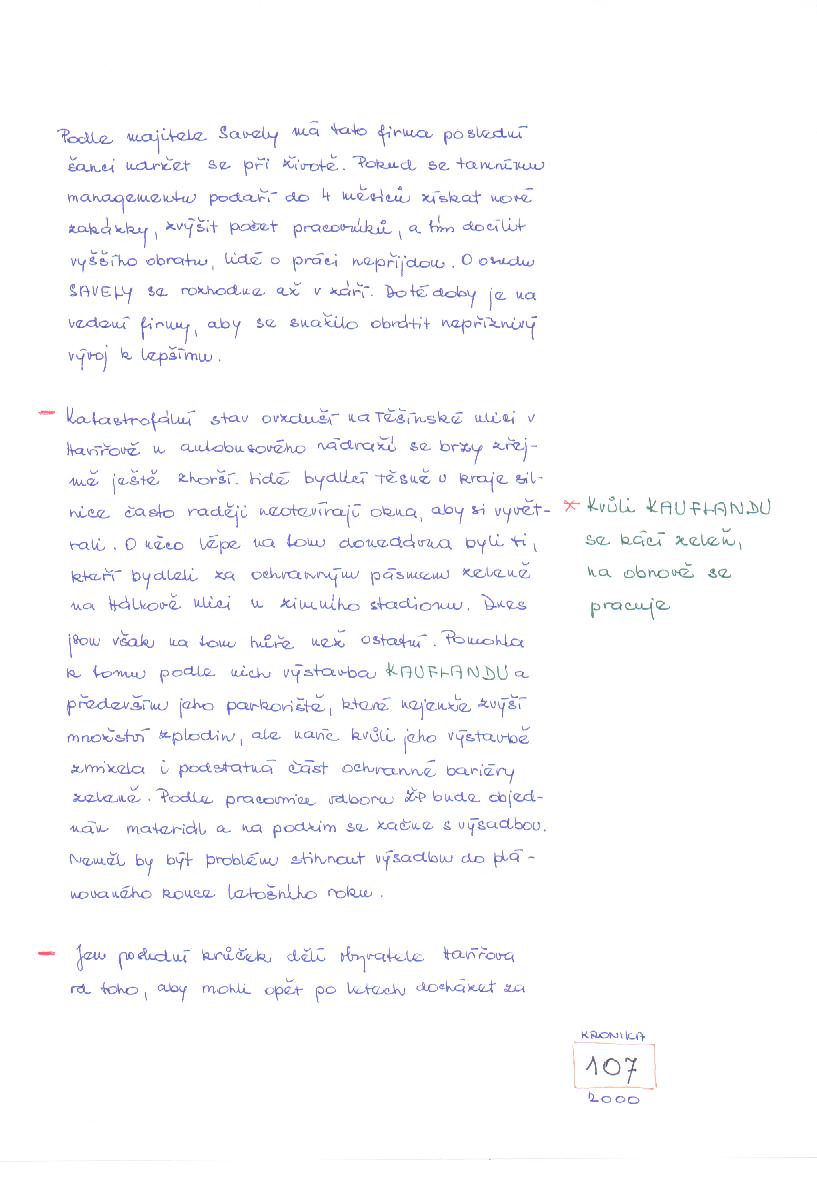 Podle majitele Savely má tato firma poslední
šanci udržet se při životě. Pokud se tamnímu
managementu podaří do 4 měsíců získat nové
zakázky, zvýšit počet pracovníků, a tím docílit
vyššího obratu, lidé o práci nepřijdou. O osudu
SAVELY se rozhodne až v září. Do té doby je na
vedení firmy, aby se snažilo obrátit nepříznivý
vývoj k lepšímu.
- Katastrofální stav ovzduší na Těšínské ulici v
Havířově u autobusového nádraží se brzy zřej-
mě ještě zhorší. Lidé bydlící těsně u kraje sil-
nice často raději neotevírají okna, aby si vyvět-
rali. O něco lépe na tom donedávna byli ti,
kteří bydleli za ochranným pásmem zeleně
na Hálkově ulici u zimního stadionu. Dnes
jsou však na tom hůře než ostatní. Pomohla
k tomu podle nich výstavba KAUFLANDU a
především jeho parkoviště, které nejenže zvýší
množství zplodin, ale navíc kvůli jeho výstavbě
zmizela i podstatná část ochranné bariéry
zeleně. Podle pracovnice odboru ŽP bude objed-
nán materiál a na podzim se začne s výsadbou.
Neměl by být problém stihnout výsadbu do plá-
novaného konce letošního roku.
* Kvůli KAUFLANDU
se kácí zeleň,
na obnově se
pracuje
- Jen poslední krůček dělí obyvatele Havířova
od toho, aby mohli opět po letech docházet za
KRONIKA
107
2000